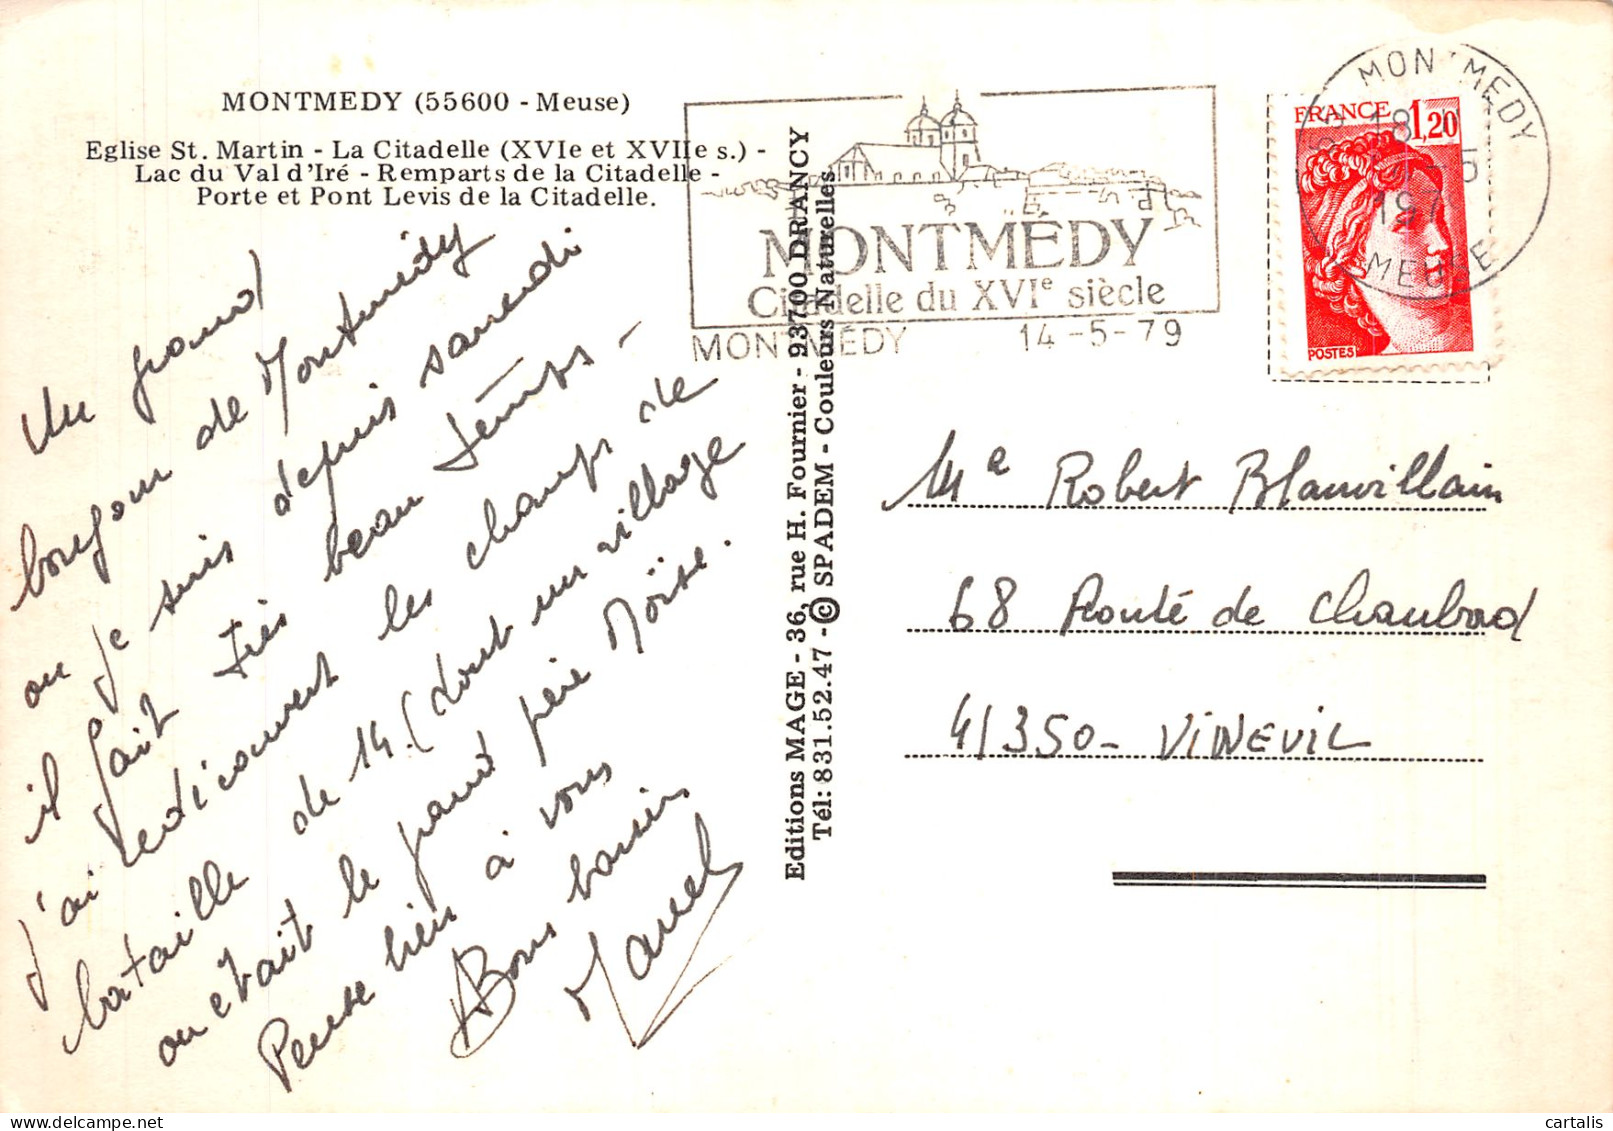 MONTMEDY (55600 - Meuse)
Eglise St. Martin - La Citadelle (XVIe et XVIIe s.) -
Lac du Val d'Iré - Remparts de la Citadelle -
Porte et Pont Levis de la Citadelle.
Un grand
bonjour de Montmédy
ou je suis depuis samedi
il fait très beau temps -
j'ai redécouvert les champs de
bataille de 14. (dont un village
ou etait le grand père Moïse.
Pense bien à vous
Bons baisers
Marcel
MONTMÉDY
Citadelle du XVIe siècle
MONTMÉDY 14-5-79
FRANCE 1,20
POSTES
MONTMEDY
18 H
14-5
197
MEUSE
Editions MAGE - 36, rue H. Fournier - 93700 DRANCY
Tél: 831.52.47 - © SPADEM - Couleurs Naturelles
Me Robert Blanvillain
68 Route de Chambord
41350 - VINEUIL
cartalis